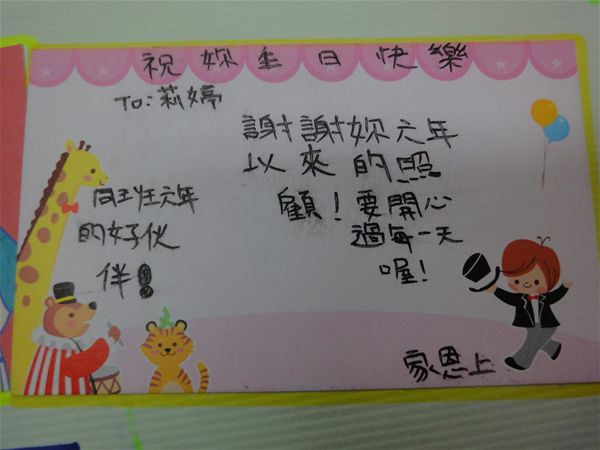 祝妳生日快樂
To:莉婷
謝謝妳元年
以來的照
顧!要開心
過每一天
喔!
同班元年
的好伙
伴!
家恩上